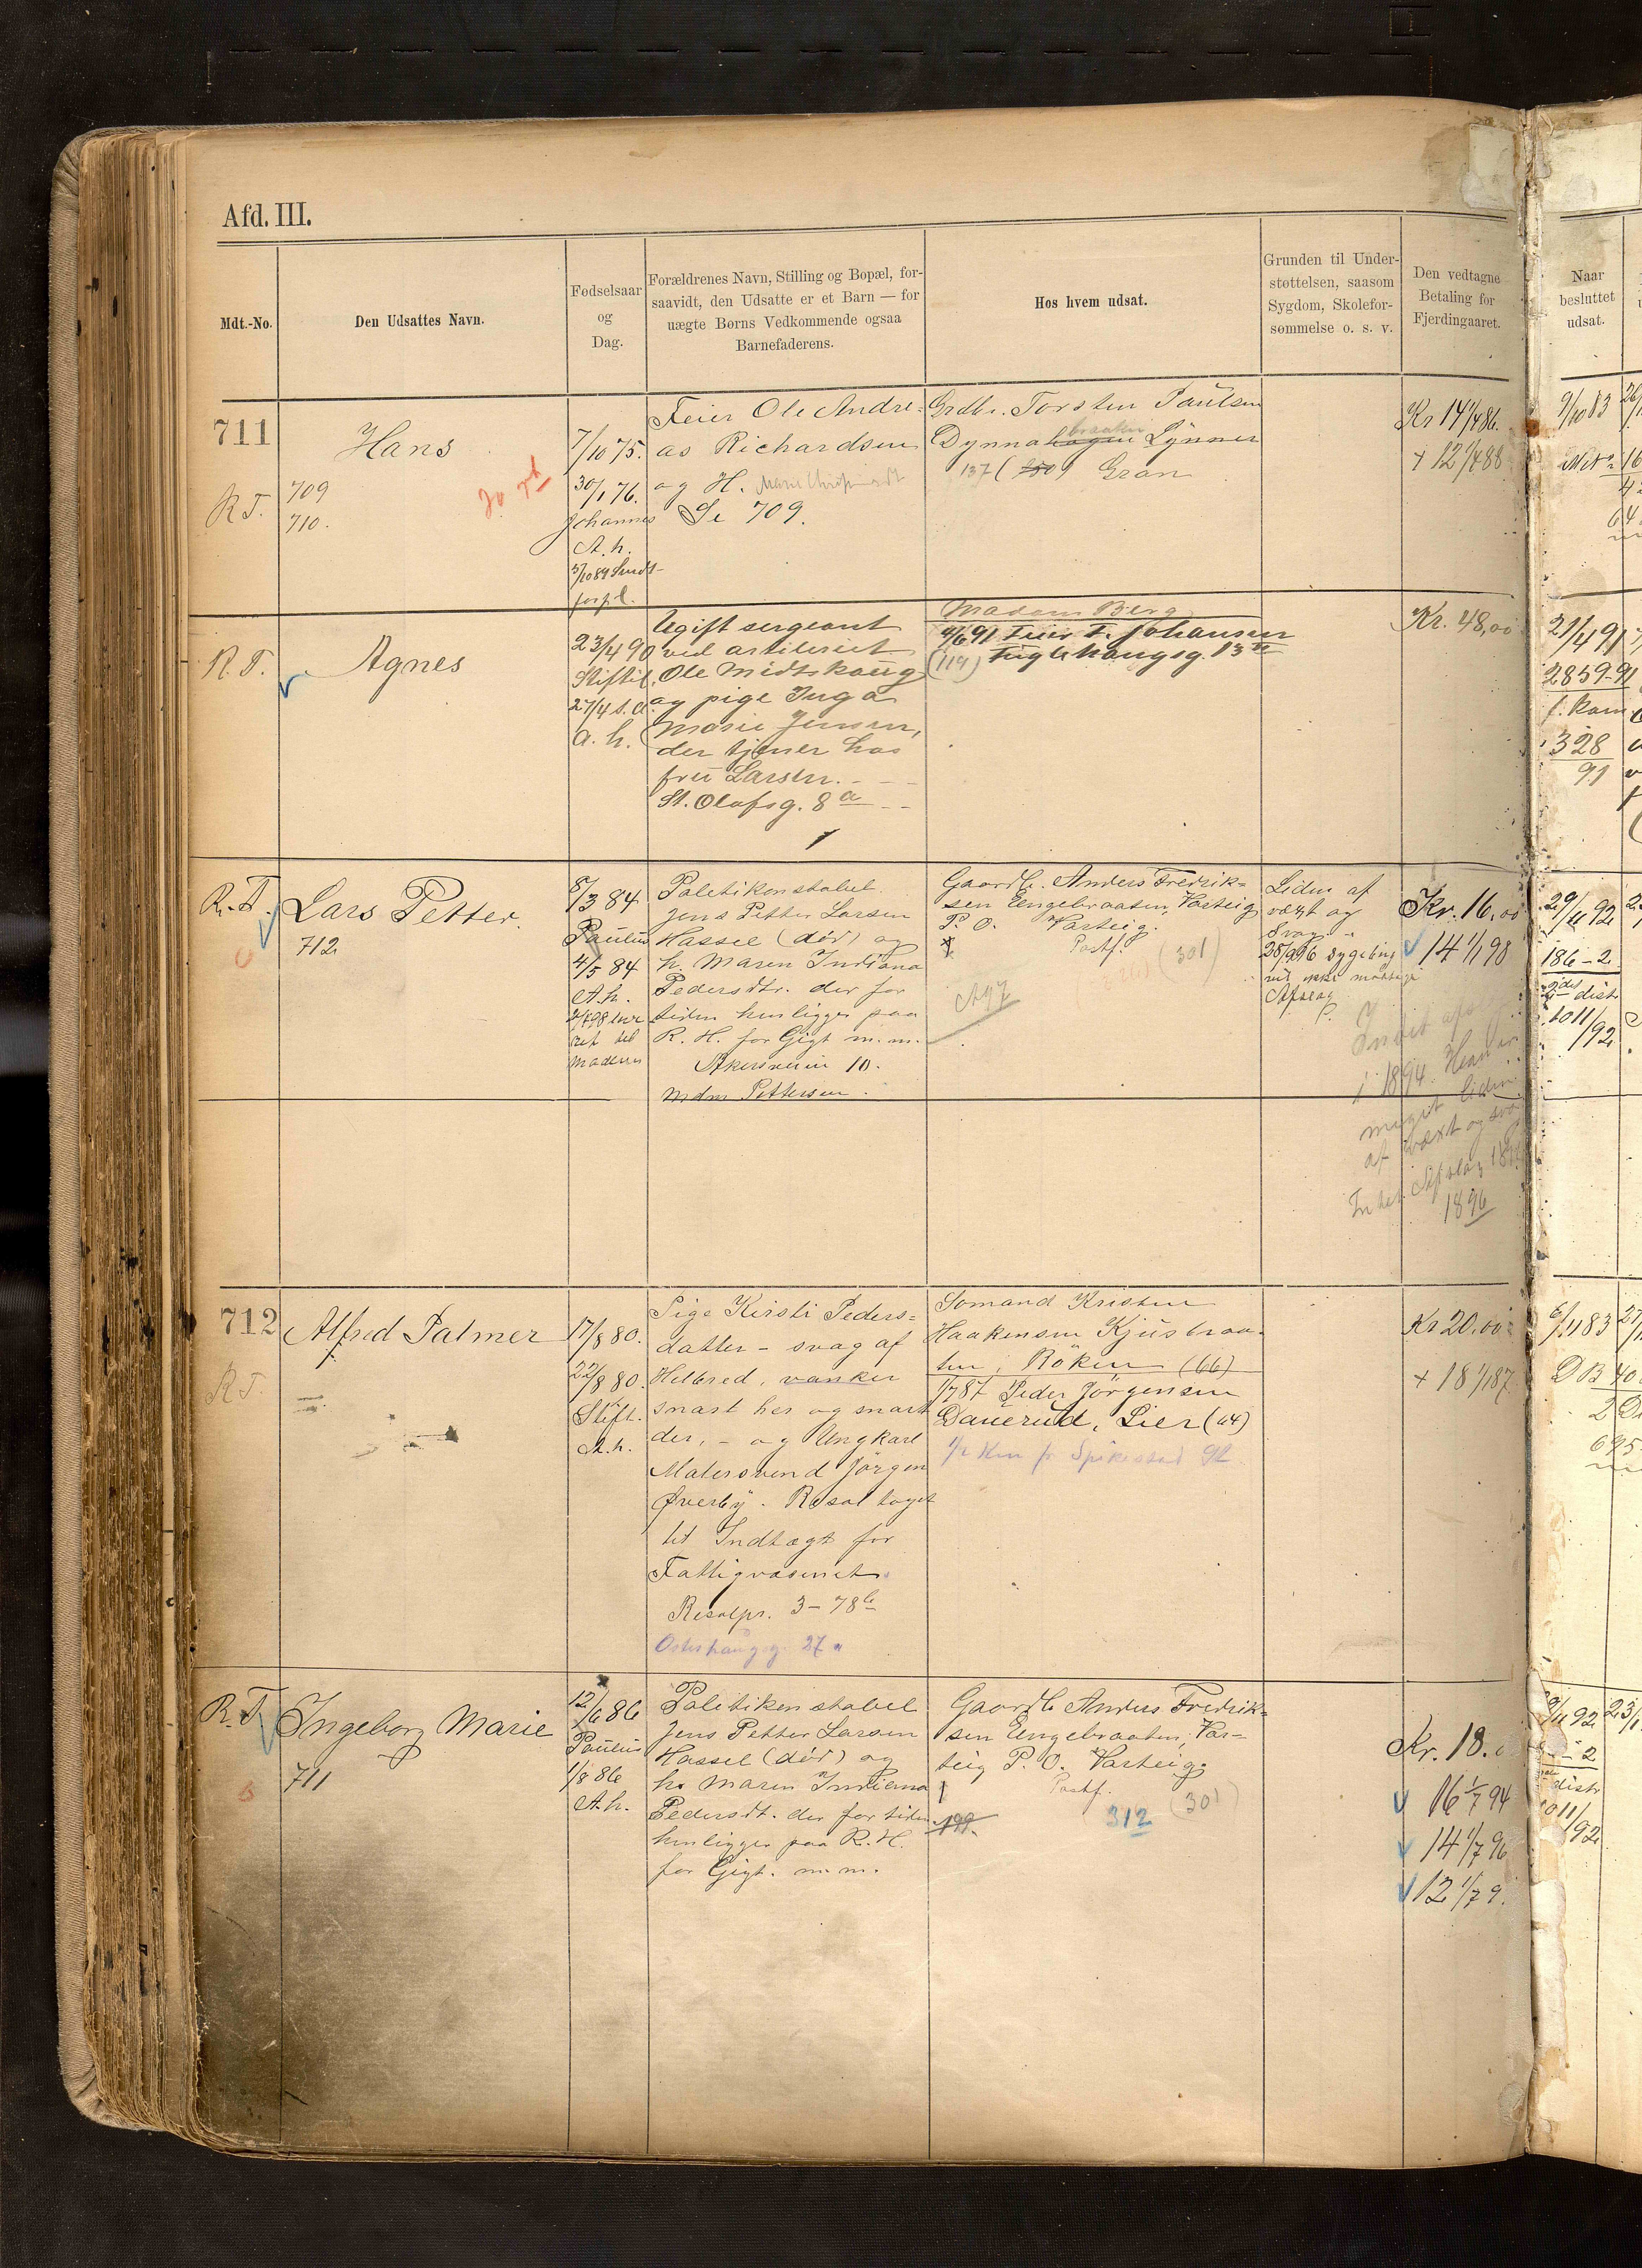 Afd. III.
Mdt.-No.
Den Udsattes Navn.
Fødselsaar
og
Dag.
Forældrenes Navn, Stilling og Bopæl, for-
saavidt, den Udsatte er et Barn — for
uægte Børns Vedkommende ogsaa
Barnefaderens.
Hos hvem udsat.
Grunden til Under-
støttelsen, saasom
Sygdom, Skolefor-
sømmelse o. s. v.
Den vedtagne
Betaling for
Fjerdingaaret.
Naar
besluttet
udsat.
711
R.T.
Hans
709
710.
7/10 75.
30/1 76.
Johannes
A. h.
Feier Ole Andre-
as Richardsen
og H.
Se 709.
Grdbr. Torsten Paulsen
braaten
Dynnahagen Lynner
137 (209) Gran
Kr 14 1/4 86.
+ 12 1/4 88
9/10 83
R.T.
Agnes
23/4 90
Stiftel.
27/4 s.d.
a. h.
Ugift sergeant
ved artileriet
Ole Midtskoug
og pige Inga
Marie Jensen,
der tjener hos
fru Larsen.
St. Olafsg. 8 a
Madam Berg
4/6 91 Feier F. Johansen
(114) Fuglehaugsg. 13 II
Kr. 48,00
21/4 91
2859-91
f. Kom.
328
91
R.T.
Lars Petter.
712
8/3 84
Paulus
4/5 84
A.h.
2/7 98 leve
ret til
moderen
Politikonstabel
Jens Petter Larsen
Hassel (død) og
h. Maren Indiana
Pedersdtr. der for
tiden henligger paa
R. H. for Gigt m.m.
Akersveien 10.
Mdm Pettersen.
Gaardb. Anders Fredrik-
sen Engebraaten, Varteig
P. O. Varteig.
Postf.
(301)
Liden af
vækst og
svag
28/9 96 sygelig
ved ikke modtage
Afslag
Kr. 16,00
14 1/1 98
Intet afslag
i 1894. Han er
meget liden
af vækst og svag
Intet Afslag
1896
29/11 92
186-2
dist
1011/92
712
R.T.
Alfred Palmer
17/8 80.
22/8 80.
Stift.
A.h.
Pige Kirsti Peders-
datter - svag af
Helbred, vanker
snart her og snart
der, - og Ungkarl
Malersvend Jørgen
Øverby. Resol taget
til Indtægt for
Fattigvæsenet.
Resolpr. 3-78
Osterhaugsg. 27 a
Sømand Kristen
Haakensen Kjusbraa-
ten, Røken (66)
1/7 87 Peder Jörgensen
Dauerud, Lier (64)
1/2 Km fr Spikestad St.
Kr 20,00
+ 18 1/1 87
6/11 83
D B 40
695
R.T.
Ingeborg Marie
711
12/6 86
Paulus
1/8 86
A.h.
Politikonstabel
Jens Petter Larsen
Hassel (død) og
h. Maren Indiana
Pedersdt. der for tiden
henligger paa R.H.
for Gigt. m.m.
Gaardb Anders Fredrik-
sen Engebraaten, Var-
teig P. O. Varteig.
Postf.
199.
312 (301)
Kr. 18.
16 1/7 94
14 1/7 96
12 1/7 9
29/11 92
dist
1011/92